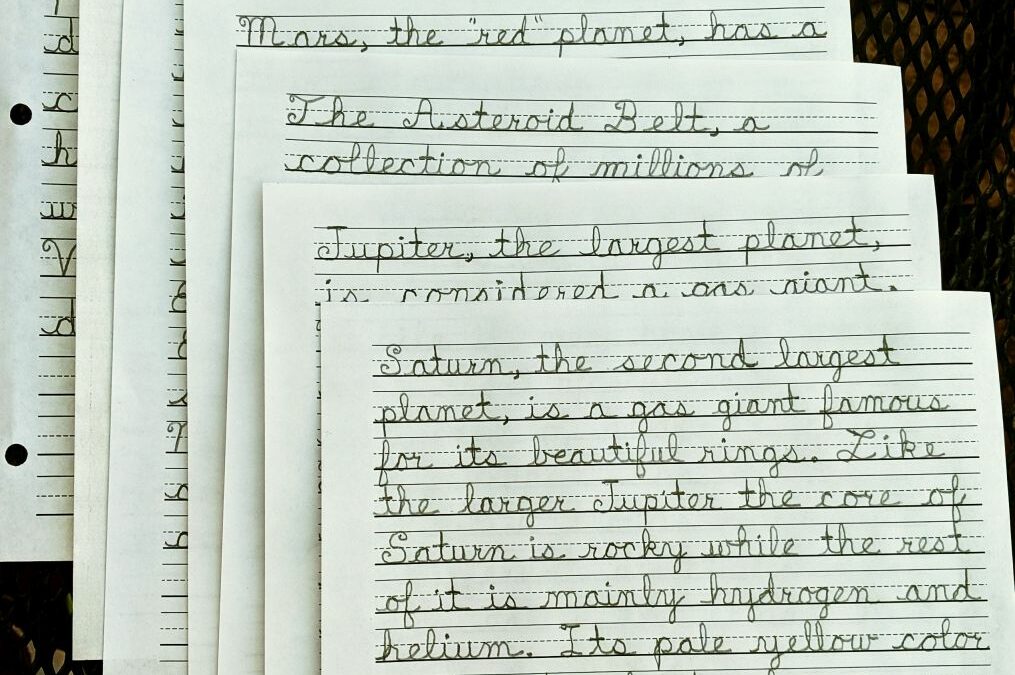 Mars, the "red" planet, has a
The Asteroid Belt, a
collection of millions of
Jupiter, the largest planet,
is considered a gas giant.
Saturn, the second largest
planet, is a gas giant famous
for its beautiful rings. Like
the larger Jupiter the core of
Saturn is rocky while the rest
of it is mainly hydrogen and
helium. Its pale yellow color